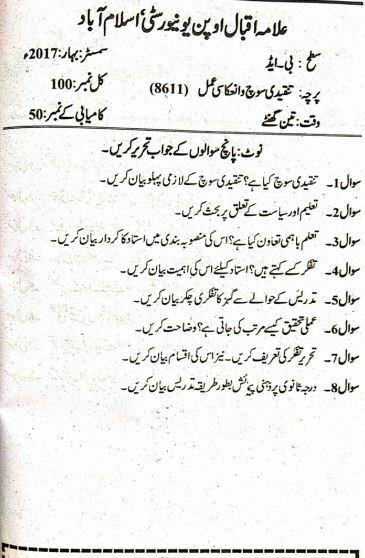 علامہ اقبال اوپن یونیورسٹی، اسلام آباد
سطح : بی۔ایڈ سمسٹر: بہار:2017ء
پرچہ: تنقیدی سوچ وانعکاسی عمل (8611) کل نمبر: 100
وقت: تین گھنٹے کامیابی کے نمبر: 50
نوٹ: پانچ سوالوں کے جواب تحریر کریں۔
سوال 1۔ تنقیدی سوچ کیا ہے؟ تنقیدی سوچ کے لازمی پہلو بیان کریں۔
سوال 2۔ تعلیم اور سیاست کے تعلق پر بحث کریں۔
سوال 3۔ تعلم باہمی تعاون کیا ہے؟ اس کی منصوبہ بندی میں استاد کا کردار بیان کریں۔
سوال 4۔ تفکر کسے کہتے ہیں؟ استاد کیلئے اس کی اہمیت بیان کریں۔
سوال 5۔ تدریس کے حوالے سے گبز کا تفکری چکر بیان کریں۔
سوال 6۔ عملی تحقیق کیسے مرتب کی جاتی ہے؟ وضاحت کریں۔
سوال 7۔ تحریر تفکر کی تعریف کریں۔ نیز اس کی اقسام بیان کریں۔
سوال 8۔ درجہ ثانوی پر ذہنی پیمائش بطور طریقہ تدریس بیان کریں۔